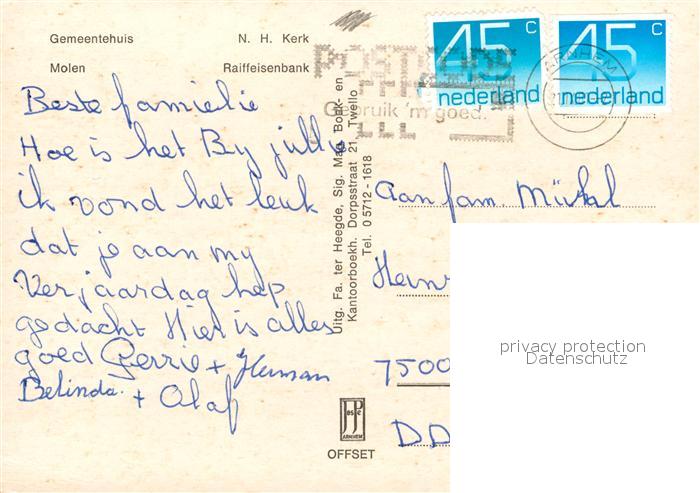 Gemeentehuis N. H. Kerk
Molen Raiffeisenbank
45 c
nederland
45 c
nederland
ARNHEM
POSTCODE
Gebruik 'm goed.
Beste famielie
Hoe is het By jullie
ik vond het leuk
dat je aan my
Verjaardag hep
gedacht Hier is alles
goed Gerrie + Herman
Belinda. + Olaf
Uitg. Fa. ter Heegde, Sig. Mag. Boek- en
Kantoorboekh. Dorpsstraat 21, Twello
Tel. 05712-1618
Aan fam.
Hein
7500
DD
JosPe
ARNHEM
OFFSET
privacy protection
Datenschutz